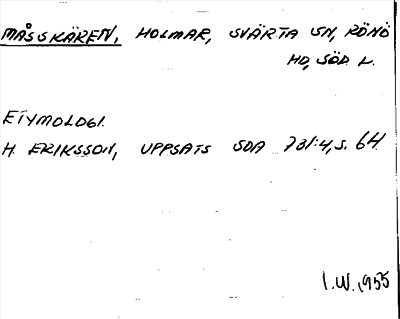 MÅSSKÄREN, HOLMAR, SVÄRTA SN, RÖNÖ
HD, SÖD. L.
ETYMOLOGI.
H. ERIKSSON, UPPSATS SOA 731:4, S. 64
I.W. 1955